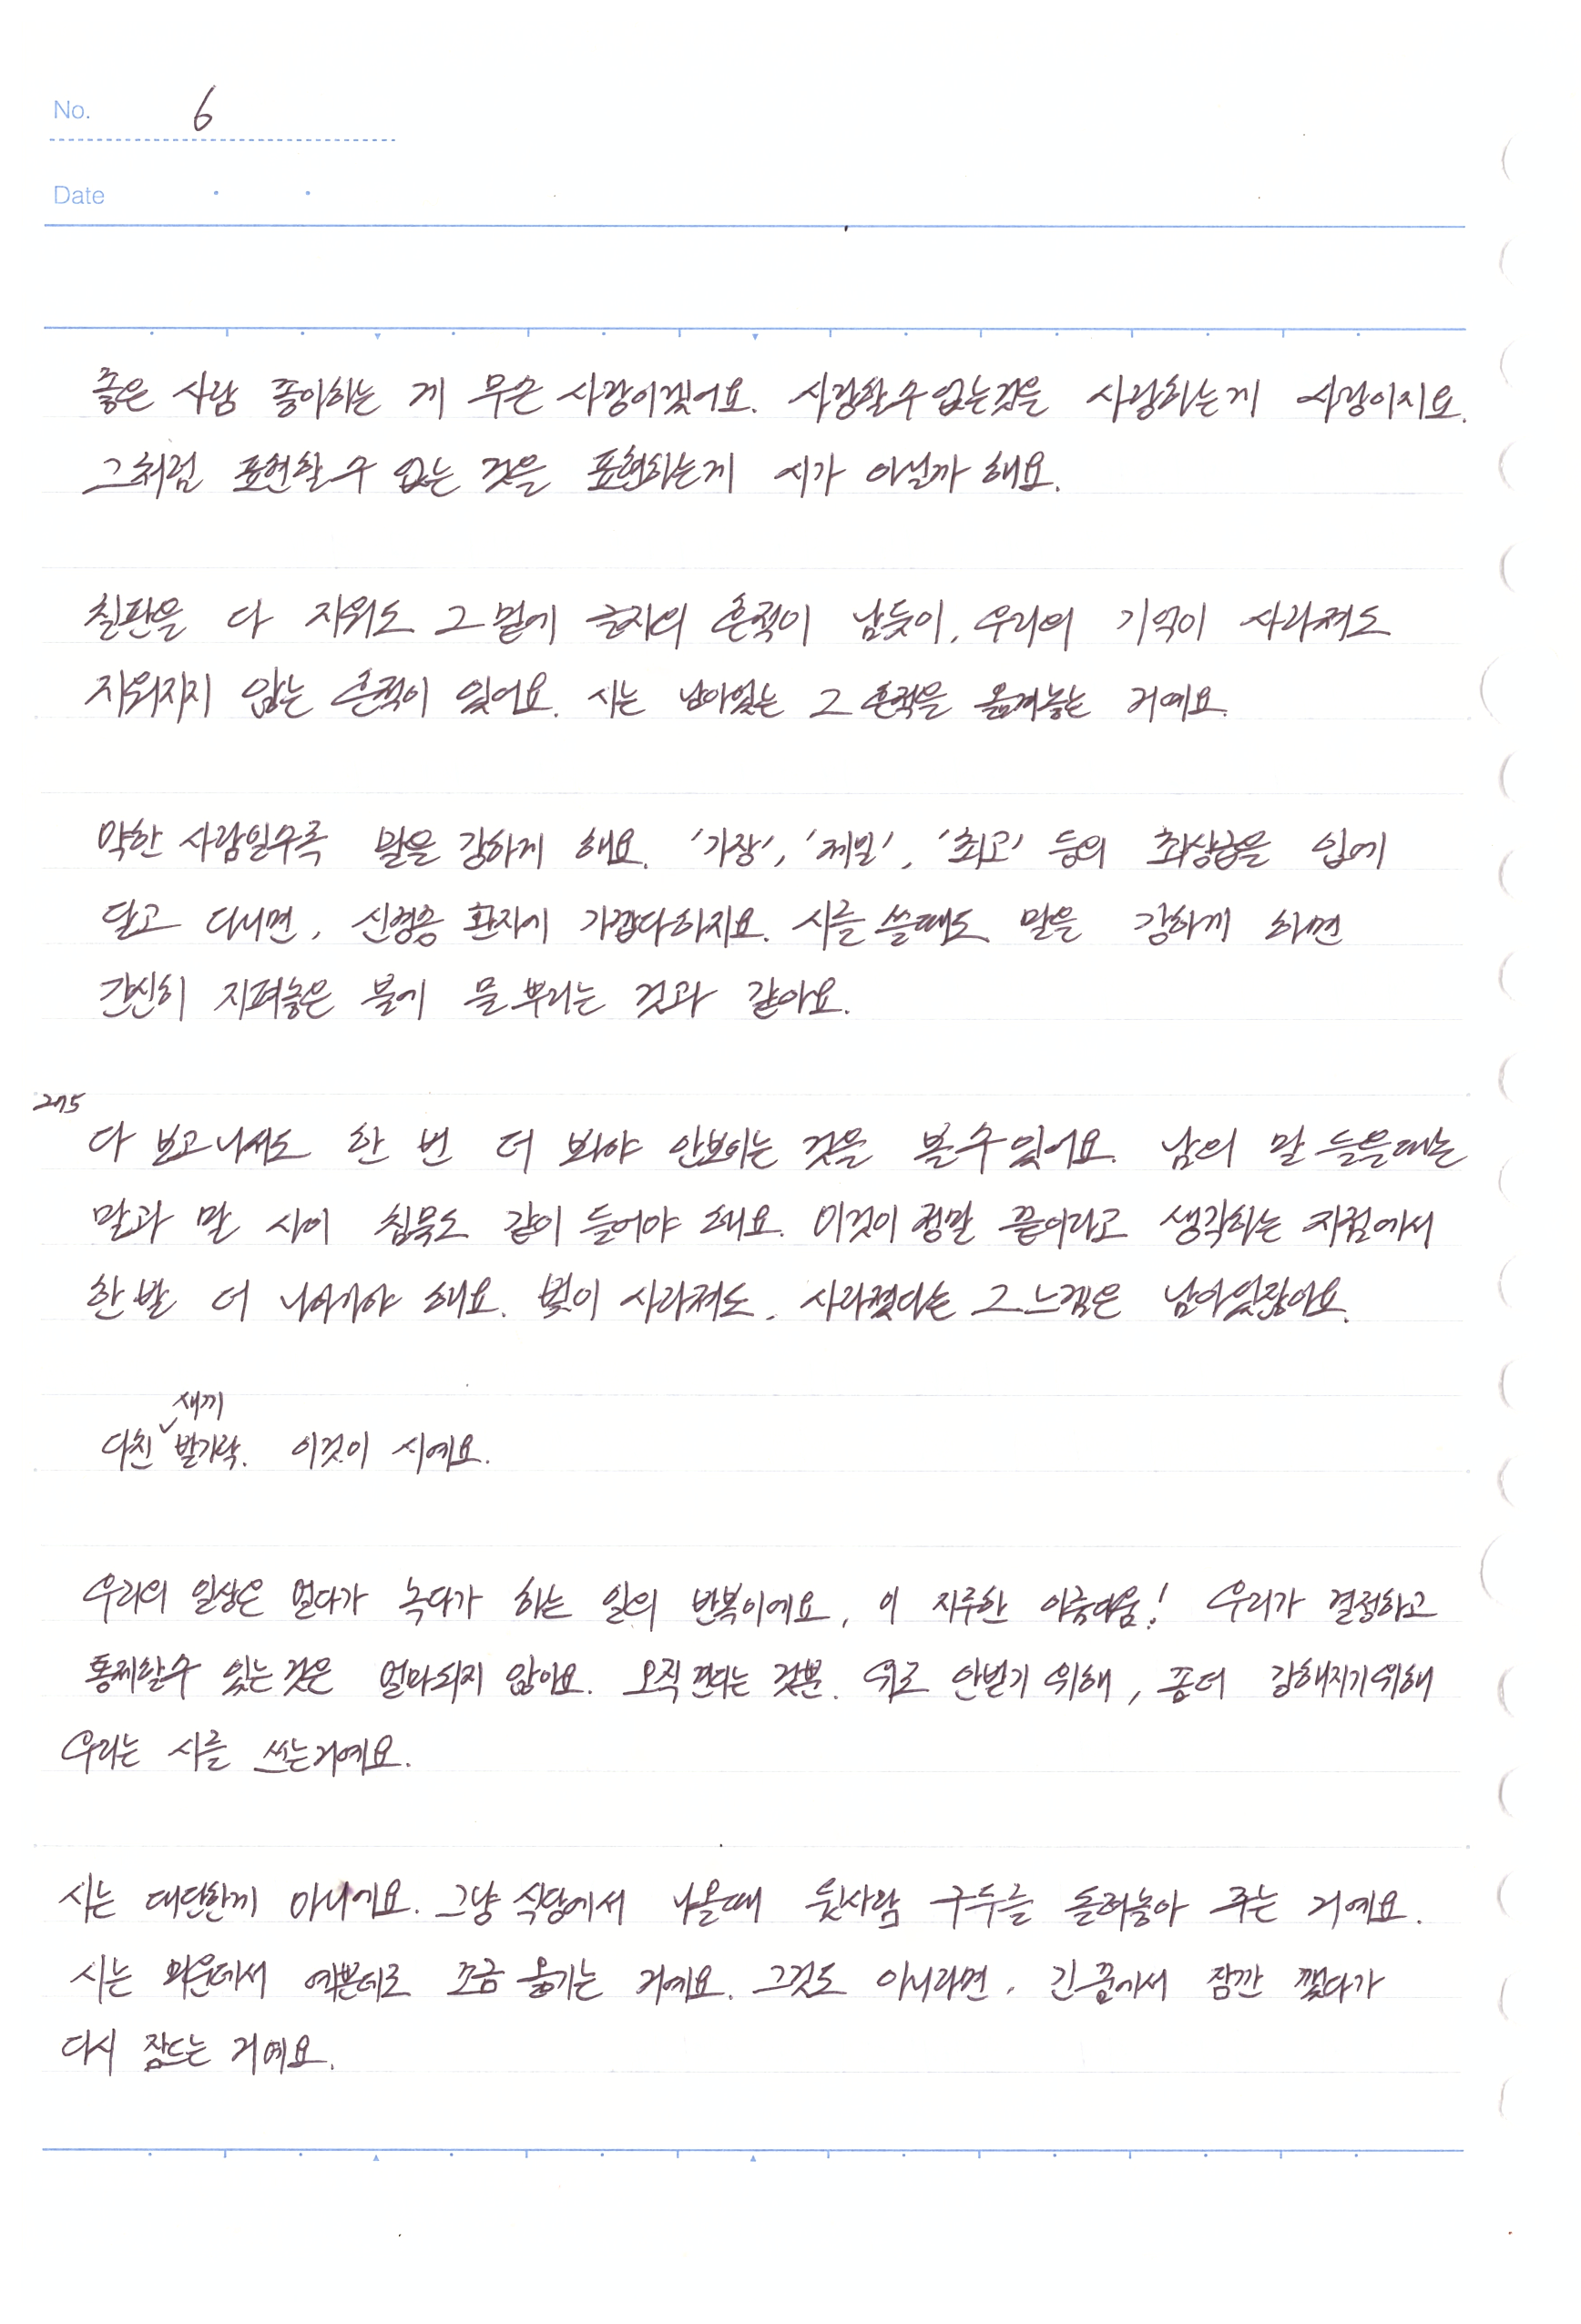 No. 6
Date
좋은 사람 좋아하는 게 무슨 사랑이겠어요. 사랑할수 없는것을 사랑하는게 사랑이지요.
그처럼 표현할 수 없는 것을 표현하는게 시가 아닐까 해요.
칠판을 다 지워도 그 밑에 글자의 흔적이 남듯이, 우리의 기억이 사라져도
지워지지 않는 흔적이 있어요. 시는 남아있는 그 흔적을 옮겨놓는 거예요.
약한 사람일수록 말을 강하게 해요. '가장', '제일', '최고' 등의 최상급을 입에
달고 다니면, 신경증 환자에 가깝다하지요. 시를 쓸때도 말을 강하게 하면
간신히 지펴놓은 불에 물 뿌리는 것과 같아요.
275
다 보고 나서도 한 번 더 봐야 안보이는 것을 볼 수 있어요. 남의 말 들을때는
말과 말 사이 침묵도 같이 들어야 해요. 이것이 정말 끝이라고 생각하는 지점에서
한 발 더 나아가야 해요. 빛이 사라져도, 사라졌다는 그 느낌은 남아있잖아요.
새끼
다친 발가락. 이것이 시예요.
우리의 일상은 얼다가 녹다가 하는 일의 반복이에요, 이 지루한 아름다움! 우리가 결정하고
통제할수 있는 것은 얼마되지 않아요. 오직 견디는 것뿐. 위로 안받기 위해, 좀더 강해지기위해
우리는 시를 쓰는거예요.
시는 대단한게 아니에요. 그냥 식당에서 나올때 뒷사람 구두를 돌려놓아 주는 거예요.
시는 미운데서 예쁜데로 조금 옮기는 거예요. 그것도 아니라면, 긴 꿈에서 잠깐 깼다가
다시 잠드는 거예요.